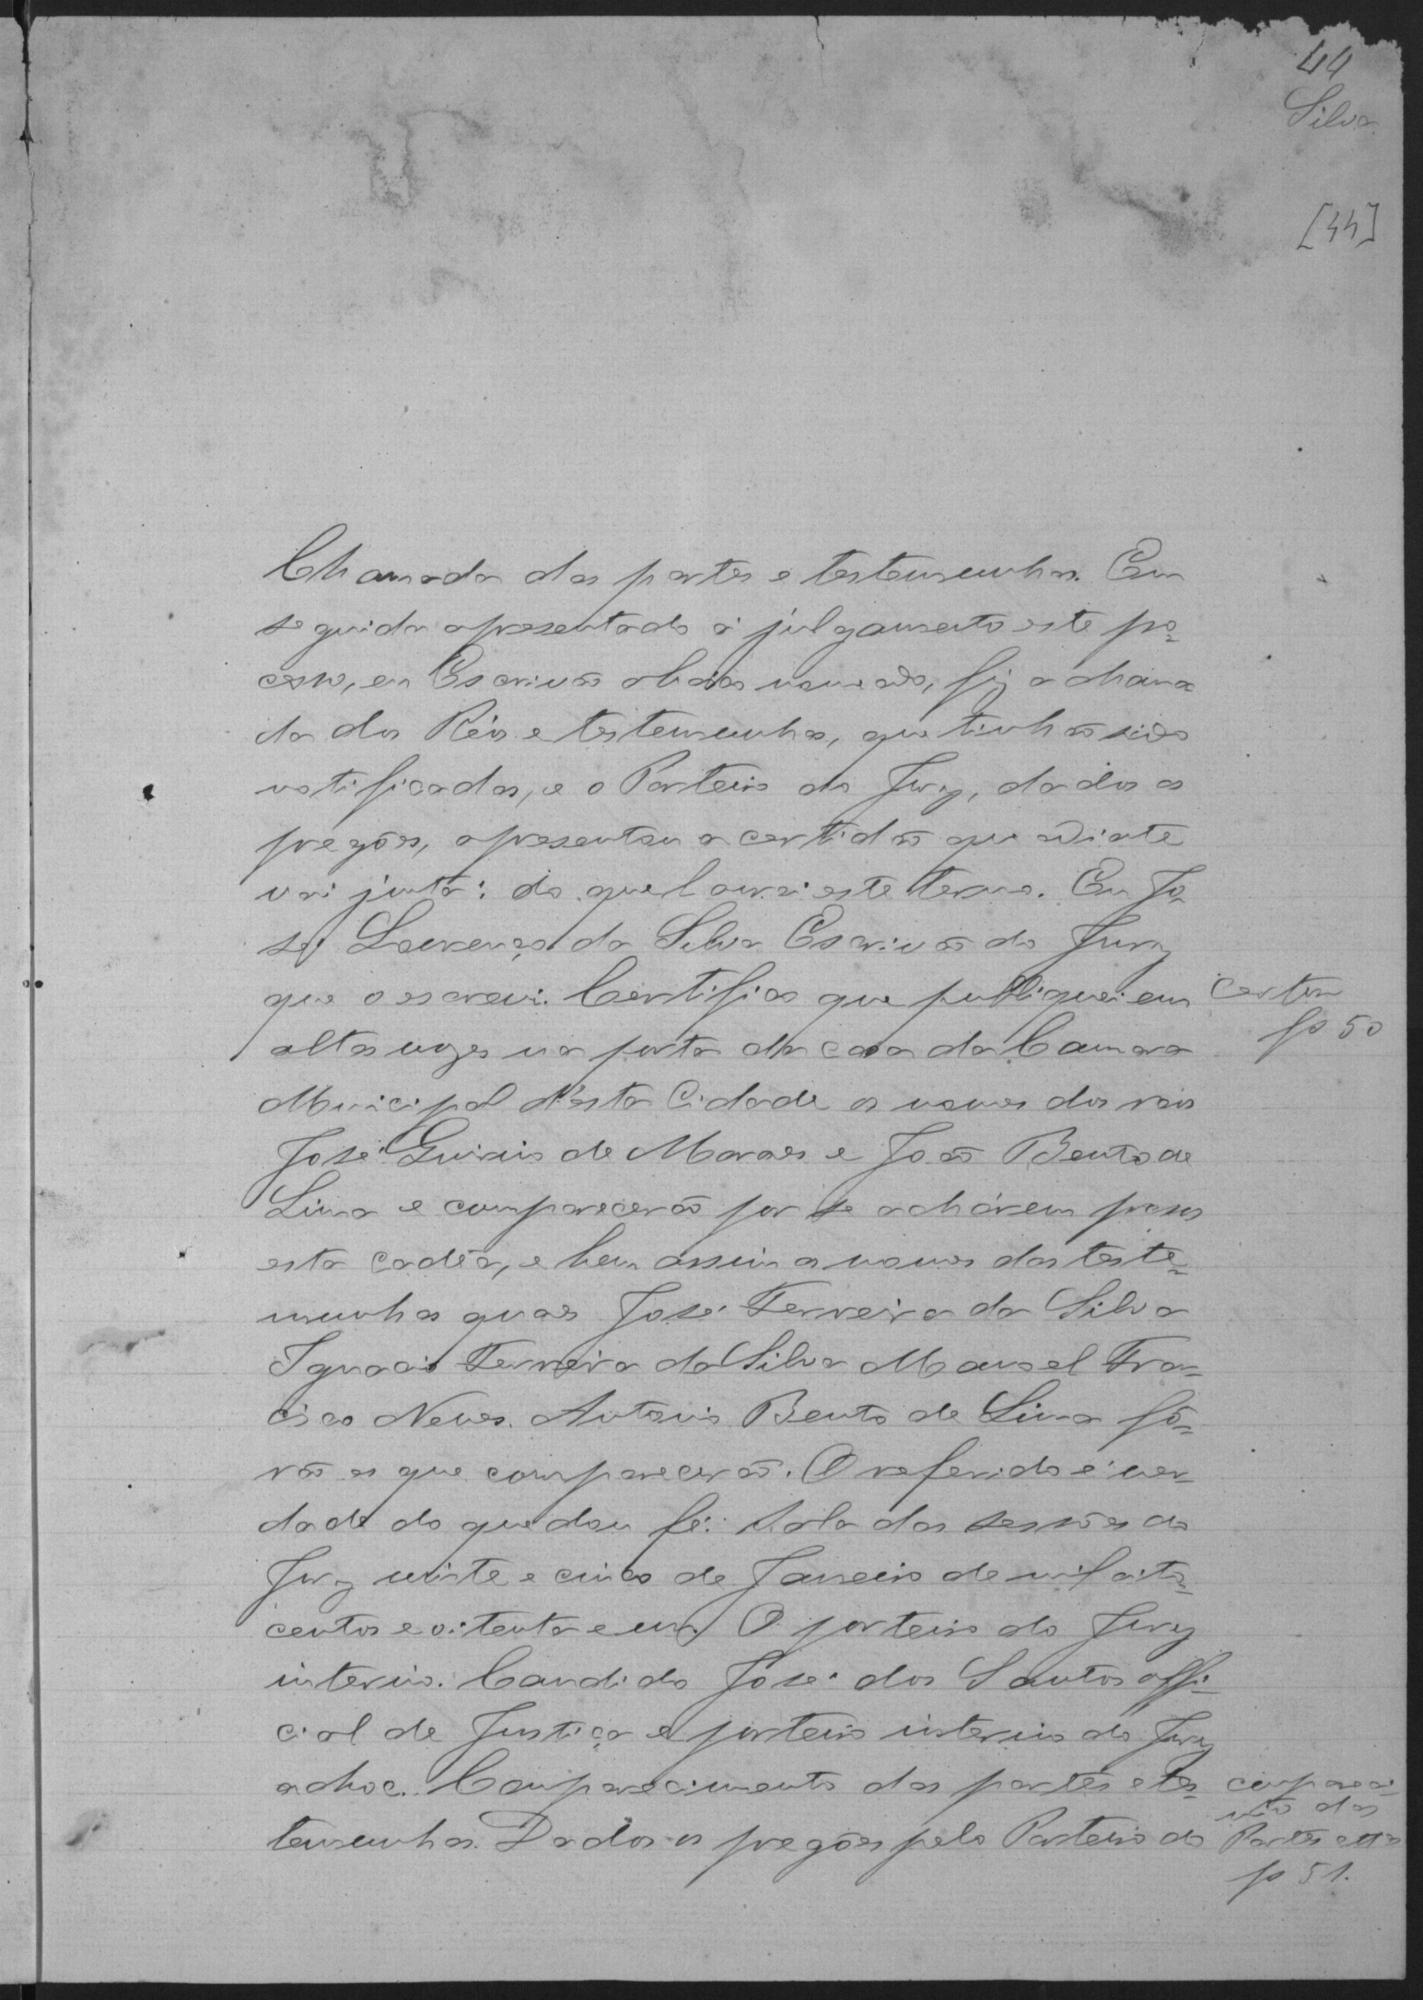 44
Silva
[44]
Chamada das partes e testemunhas. Em
seguida apresentado á julgamento este pro=
cesso, eu Escrivão abaixo nomeado, fiz a chama
da dos Réos e testemunhas, que tinhão sido
notificadas, e o Porteiro do Jury, dados os
pregões, apresentou a certidão que adiante
vai junta: do que lavrei este termo. Eu Jo=
sé Lourenço da Silva Escrivão do Jury
que o escrevi. Certifico que publiquei em
altas vozes na porta da casa da Camara
Municipal d'esta Cidade os nomes dos reos
José Quirino de Moraes e João Bento de
Lima e comparecerão por se achárem presos
esta cadêa, e bem assim os nomes das teste=
munhas quaes José Ferreira da Silva
Ignacio Ferreira da Silva Manoel Fran=
cisco Neves. Antonio Bento de Lima fô=
rão os que comparecerão. O referido é ver=
dade do que dou fé. Sala das sessões do
Jury vinte e cinco de Janeiro de mil oito=
centos e oitenta e um. O porteiro do Jury
interino. Candido José dos Santos offi=
cial de Justiça e porteiro interino do Jury
adhoc. Comparecimento das partes e tes=
temunhas. Dados os pregões pelo Porteiro do
Certam
fs 50
compareci
mto das
Partes e ttas
fs 51.